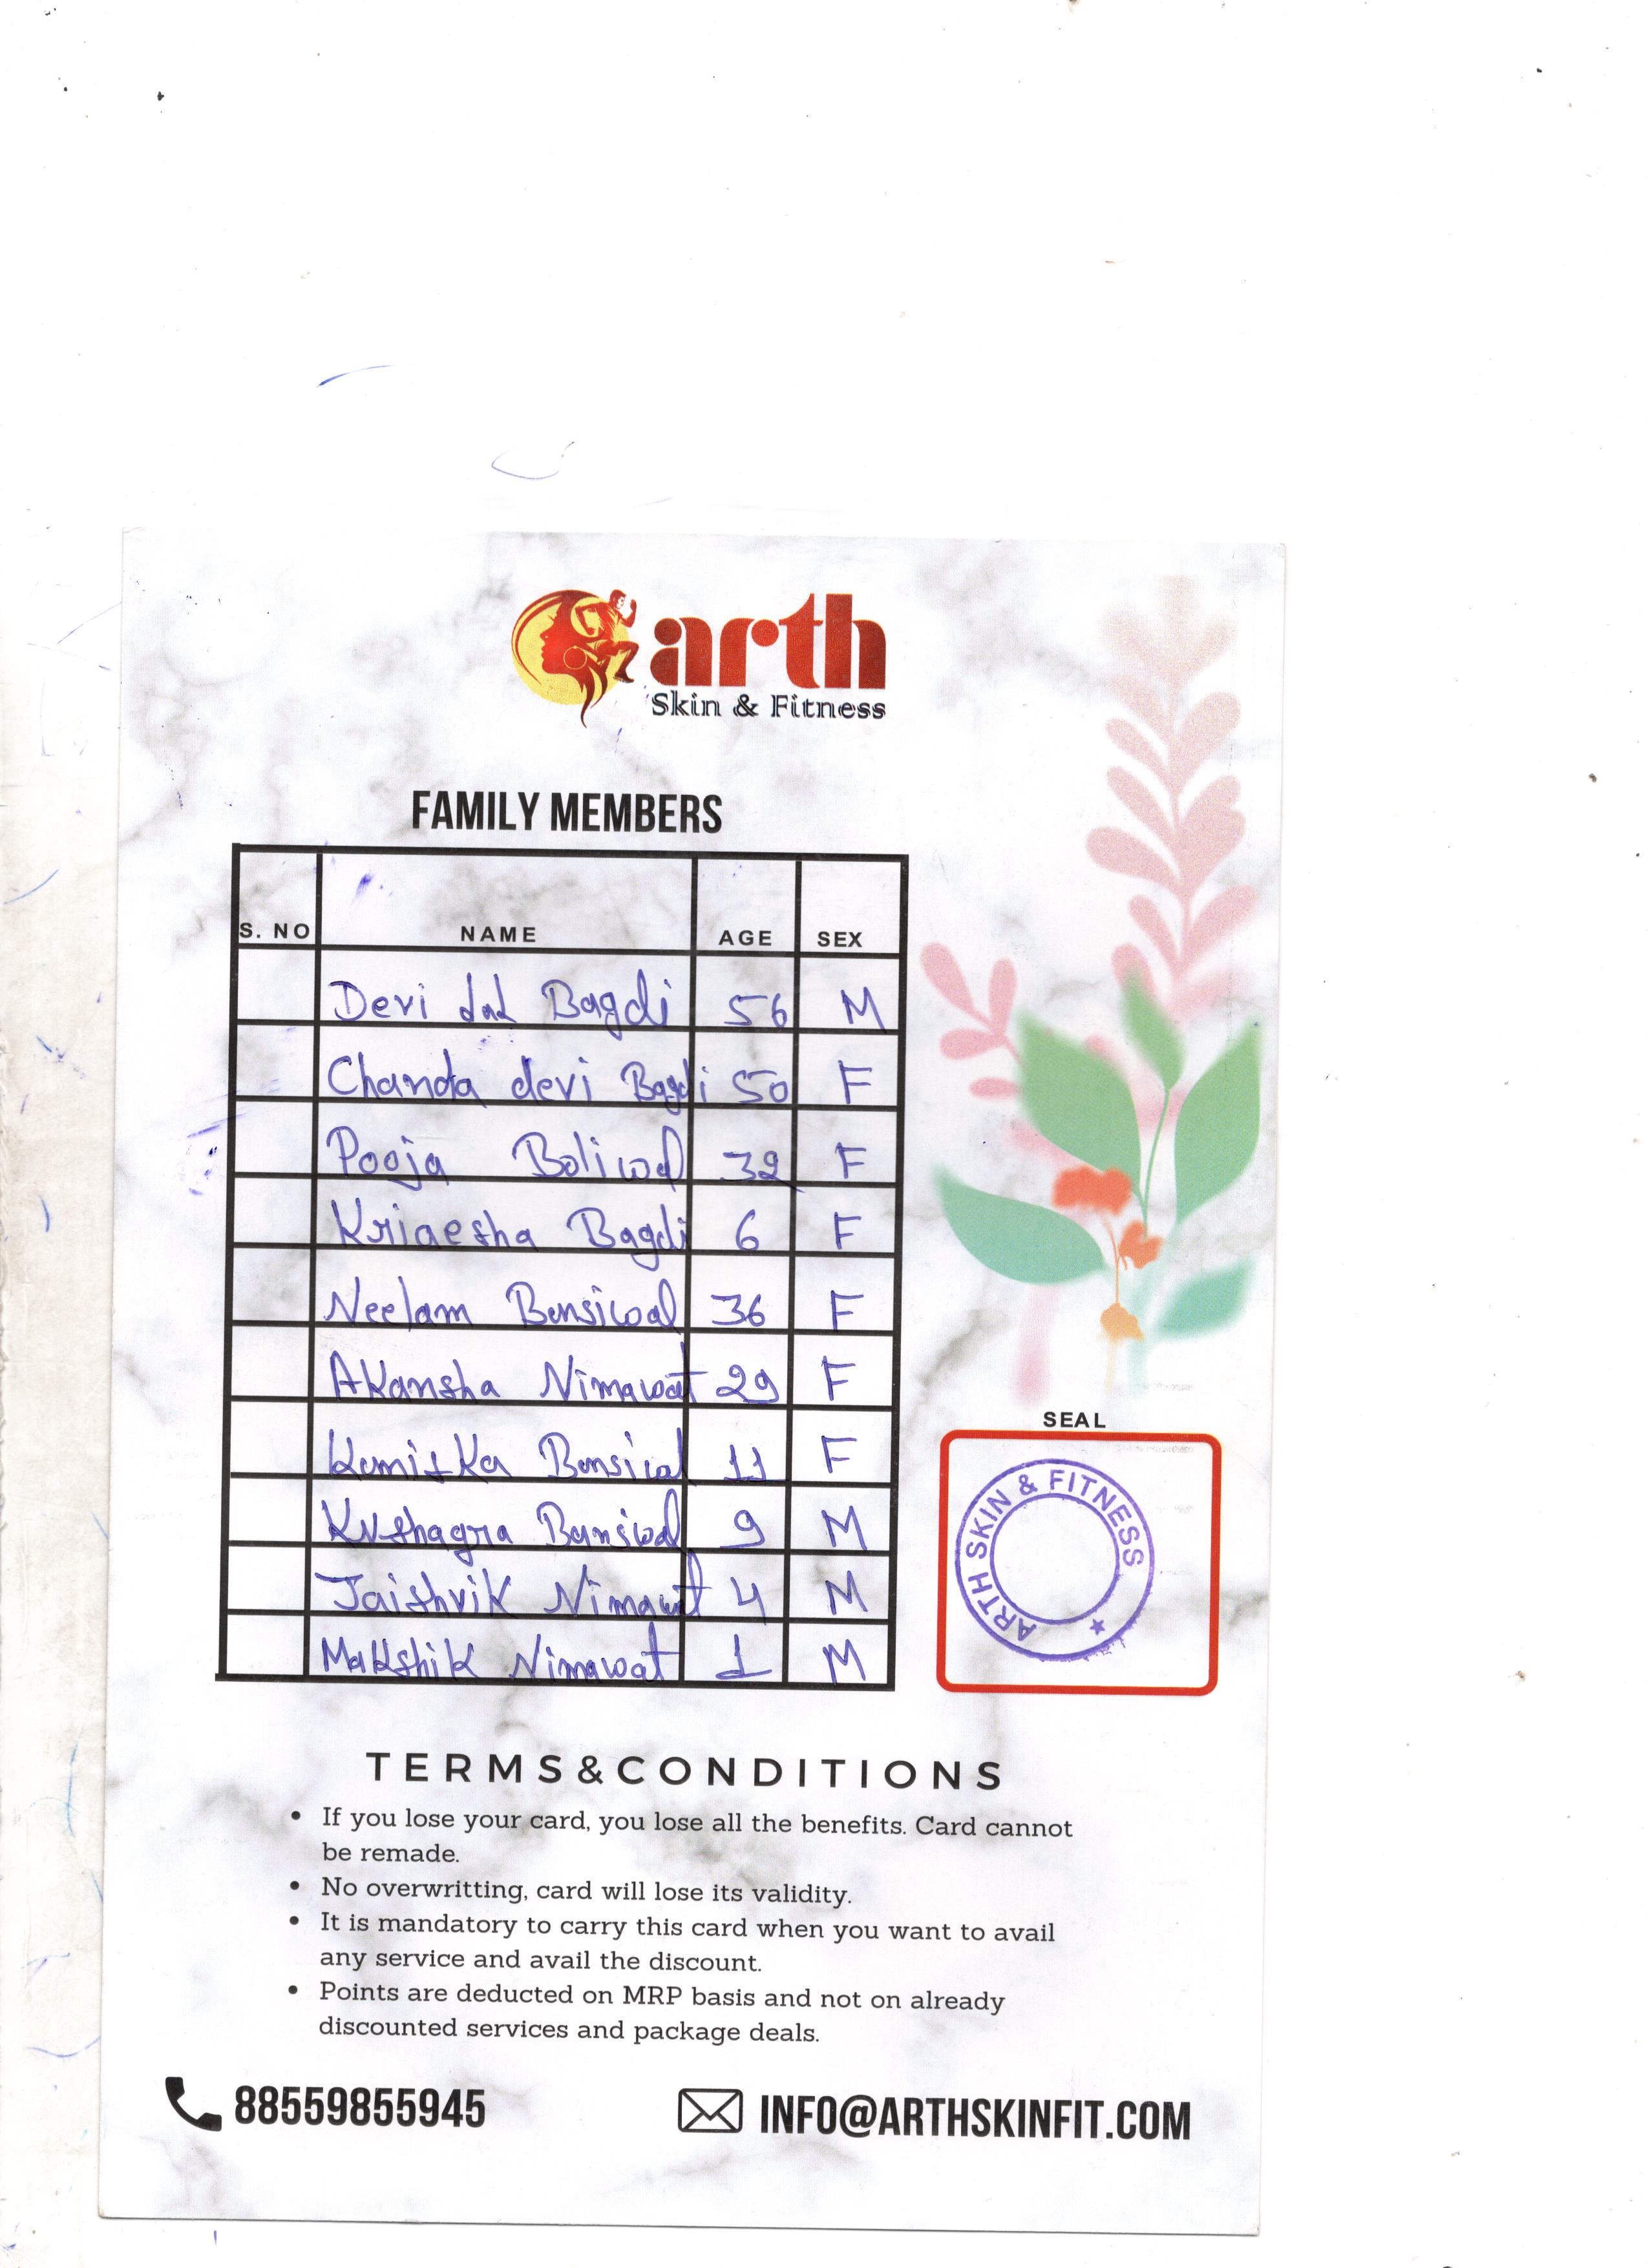 arth
Skin & Fitness
FAMILY MEMBERS
S. NO NAME AGE SEX
Devi Lal Bagdi 56 M
Chanda devi Bagdi 50 F
Pooja Boliwal 32 F
Kriaesha Bagdi 6 F
Neelam Bansiwal 36 F
Akansha Nimawat 29 F
Kanishka Bansiwal 11 F
Kushagra Bansiwal 9 M
Jaishvik Nimawat 4 M
Makshik Nimawat 1 M
SEAL
ARTH SKIN & FITNESS
TERMS&CONDITIONS
• If you lose your card, you lose all the benefits. Card cannot
be remade.
• No overwritting, card will lose its validity.
• It is mandatory to carry this card when you want to avail
any service and avail the discount.
• Points are deducted on MRP basis and not on already
discounted services and package deals.
88559855945 INFO@ARTHSKINFIT.COM